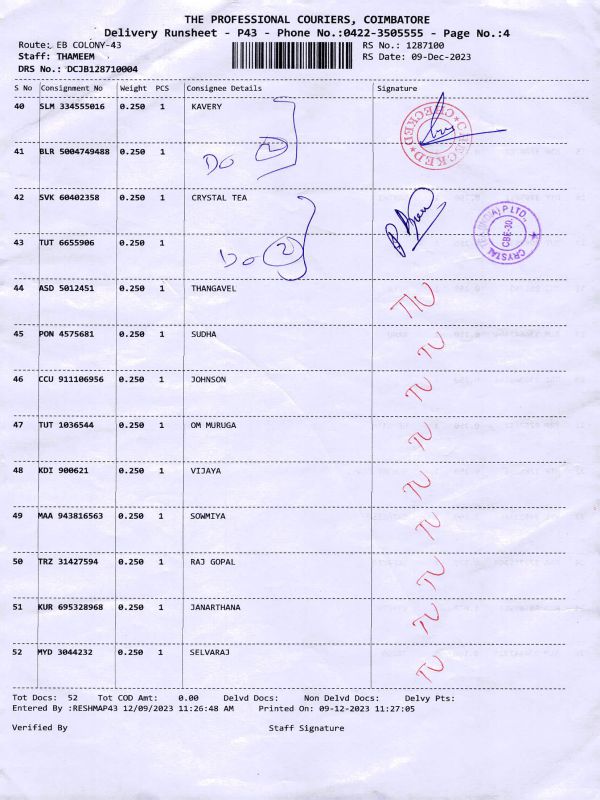 THE PROFESSIONAL COURIERS, COIMBATORE
Delivery Runsheet - P43 - Phone No.:0422-3505555 - Page No.:4
Route: EB COLONY-43 RS No.: 1287100
Staff: THAMEEM RS Date: 09-Dec-2023
DRS No.: DCJB128710004
S No Consignment No Weight PCS Consignee Details Signature
40 SLM 334555016 0.250 1 KAVERY
CHECKED CHECKED
41 BLR 5004749488 0.250 1 Do 2
42 SVK 60402358 0.250 1 CRYSTAL TEA
CRYSTAL TEA (INDIA) P LTD., CBE-30.
43 TUT 6655906 0.250 1 Do 2
44 ASD 5012451 0.250 1 THANGAVEL TU
45 PON 4575681 0.250 1 SUDHA TU
46 CCU 911106956 0.250 1 JOHNSON TU
47 TUT 1036544 0.250 1 OM MURUGA TU
48 KDI 900621 0.250 1 VIJAYA TU
49 MAA 943816563 0.250 1 SOWMIYA TU
50 TRZ 31427594 0.250 1 RAJ GOPAL TU
51 KUR 695328968 0.250 1 JANARTHANA TU
52 MYD 3044232 0.250 1 SELVARAJ TU
Tot Docs: 52 Tot COD Amt: 0.00 Delvd Docs: Non Delvd Docs: Delvy Pts:
Entered By :RESHMAP43 12/09/2023 11:26:48 AM Printed On: 09-12-2023 11:27:05
Verified By Staff Signature